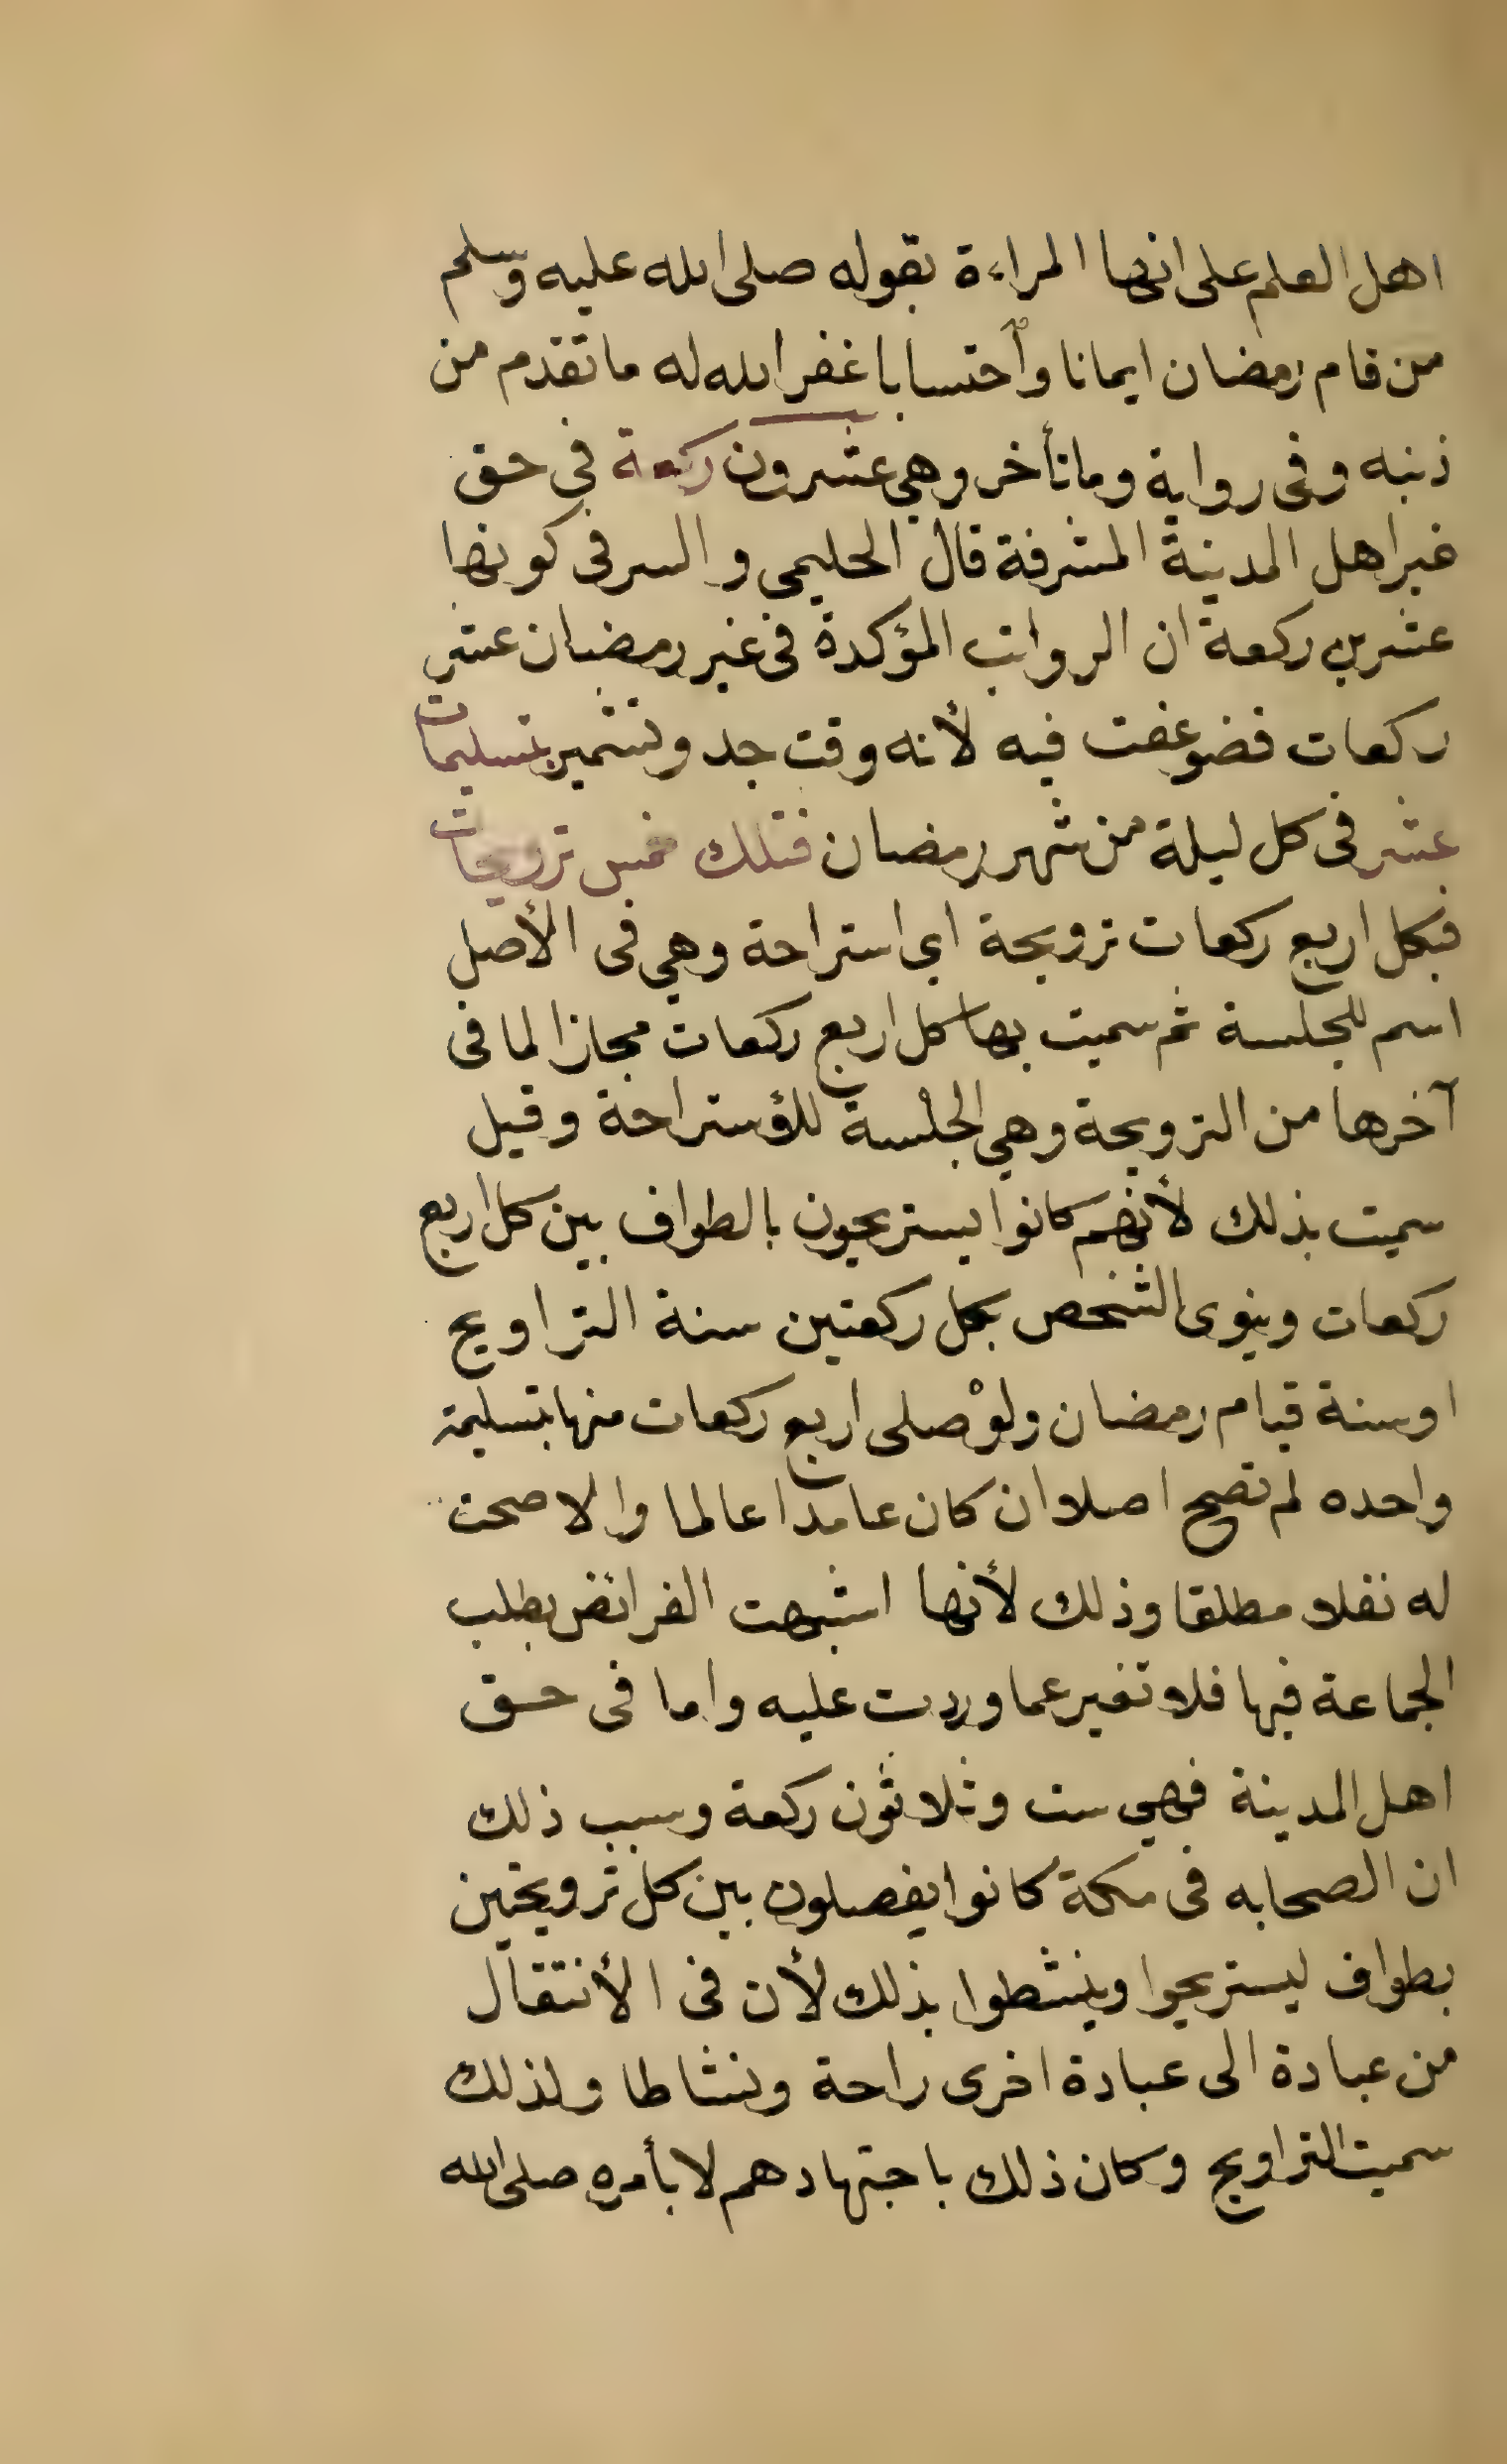 اهل العلم على انها المراءة بقوله صلى الله عليه وسلم
من قام رمضان ايمانا وأحتسابا غفر الله له ما تقدم من
ذنبه وفى رواية وما تأخر وهي عشرون ركعة في حق
غير اهل المدينة المشرفة قال الحليمى والسر فى كونها
عشرين ركعة ان الرواتب المؤكدة فى غير رمضان عشر
ركعات فضوعفت فيه لأنه وقت جد وتشمير بتسليمات
عشر فى كل ليلة من شهر رمضان فتلك خمس ترويحات
فبكل اربع ركعات ترويحة اى استراحة وهي فى الأصل
اسم للجلسة ثم سميت بها كل اربع ركعات مجازا لما فى
آخرها من الترويحة وهي الجلسة للأستراحة وقيل
سميت بذلك لأنهم كانوا يستريحون بالطواف بين كل اربع
ركعات وينوى الشخص بكل ركعتين سنة التراويح
اوسنة قيام رمضان ولوْ صلى اربع ركعات منها بتسليمة
واحده لم تصح اصلا ان كان عامدا عالما والا صحت
له نفلا مطلقا وذلك لأنها اشبهت الفرائض بطلب
الجماعة فيها فلا تغير عما وردت عليه واما فى حق
اهل المدينة فهي ست وثلاثون ركعة وسبب ذلك
ان الصحابه فى مكة كانوا يفصلون بين كل ترويحتين
بطواف ليستريحوا وينشطوا بذلك لأن فى الأنتقال
من عبادة الى عبادة اخرى راحة ونشاطا ولذلك
سميت التراويح وكان ذلك باجتهادهم لا بأمره صلى الله